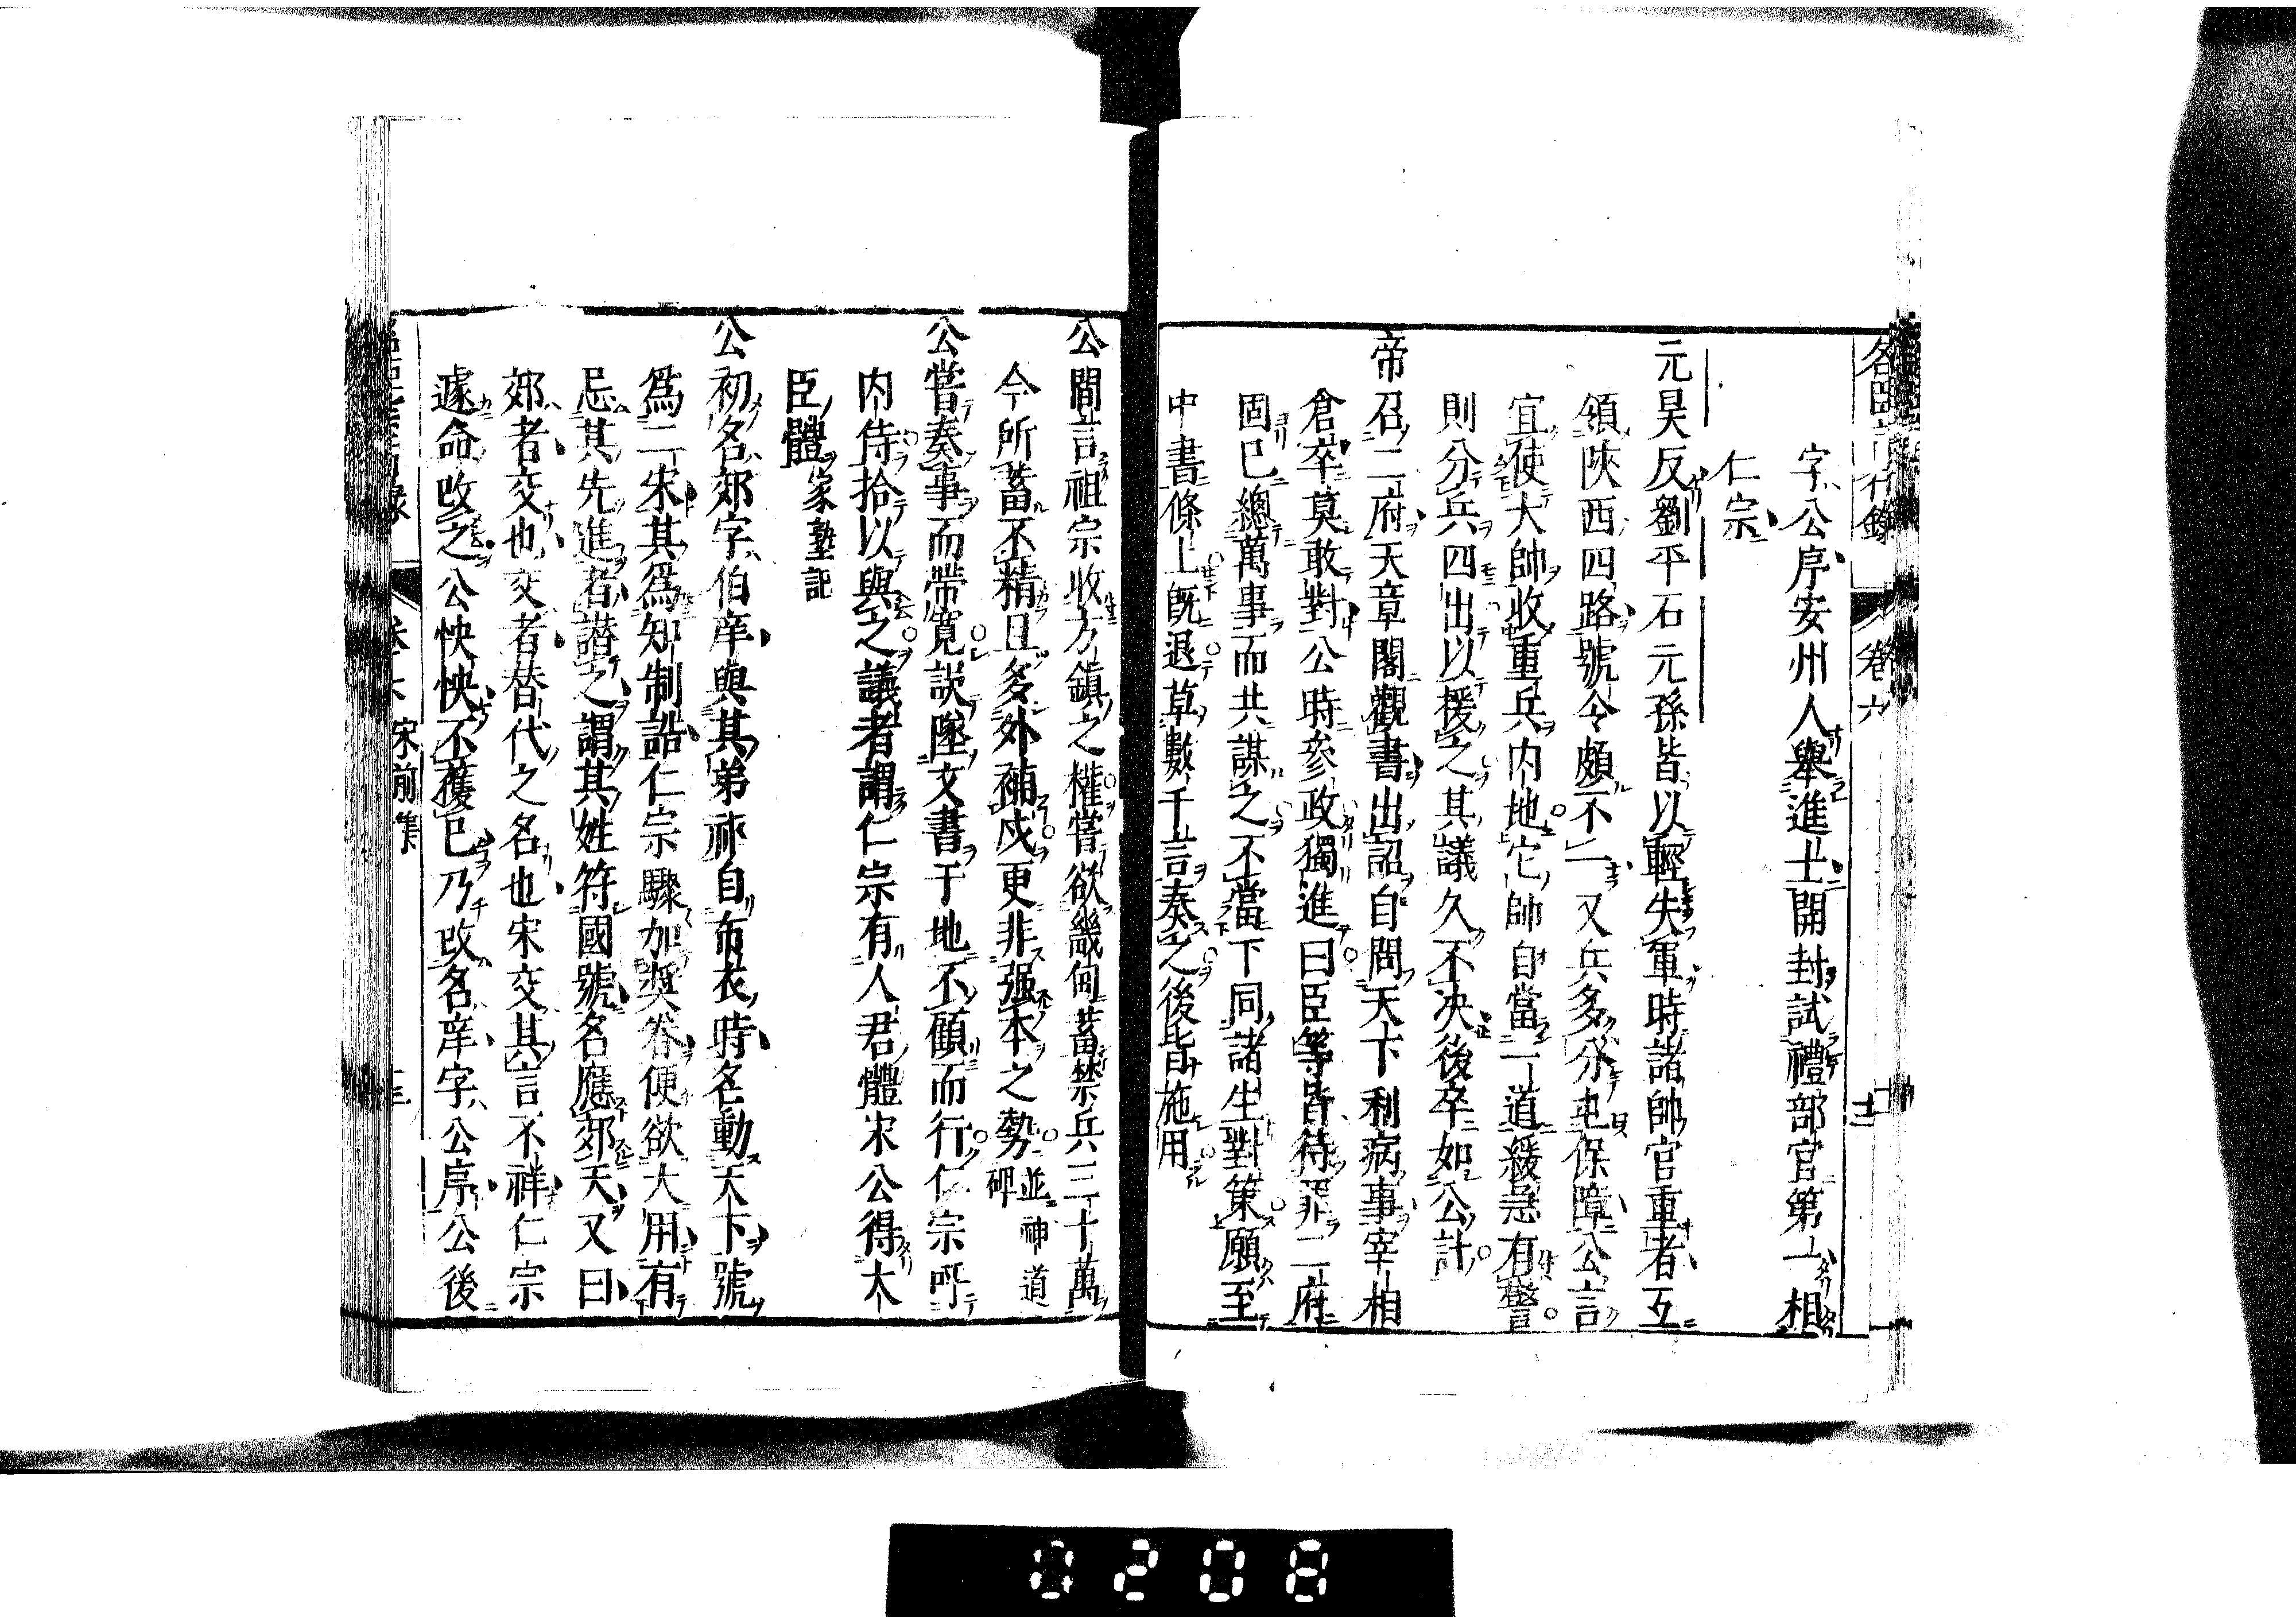 名臣言行錄 卷六
字公序安州人舉進士開封試禮部官第一相
仁宗
元昊反劉平石元孫皆以輕失軍時諸帥官重者互
領陝西四路號令頗不一又兵多分屯保障公言
宜使大帥收重兵內地它帥自當一道緩急有警
則分兵四出以援之其議久不决後卒如公計
帝召二府天章閣觀書出詔自問天下利病事宰相
倉卒莫敢對公時參政獨進曰臣等皆待罪二府
固已總萬事而共謀之不當下同諸生對策願至
中書條上既退草數千言奏之後皆施用
公間言祖宗收方鎮之權嘗欲畿甸蓄禁兵三十萬
今所蓄不精且多外補戍更非强本之勢並神道碑
公嘗奏事而帶寬誤墜文書于地不顧而行仁宗呼
內侍拾以與之議者謂仁宗有人君體宋公得大
臣體家塾記
公初名郊字伯庠與其弟祁自布衣時名動天下號
爲二宋其爲知制誥仁宗驟加奬眷便欲大用有
忌其先進者譖之謂其姓符國號名應郊天又曰
郊者交也交者替代之名也宋交其言不祥仁宗
遽命改之公怏怏不獲已乃改名庠字公序公後
宋前集